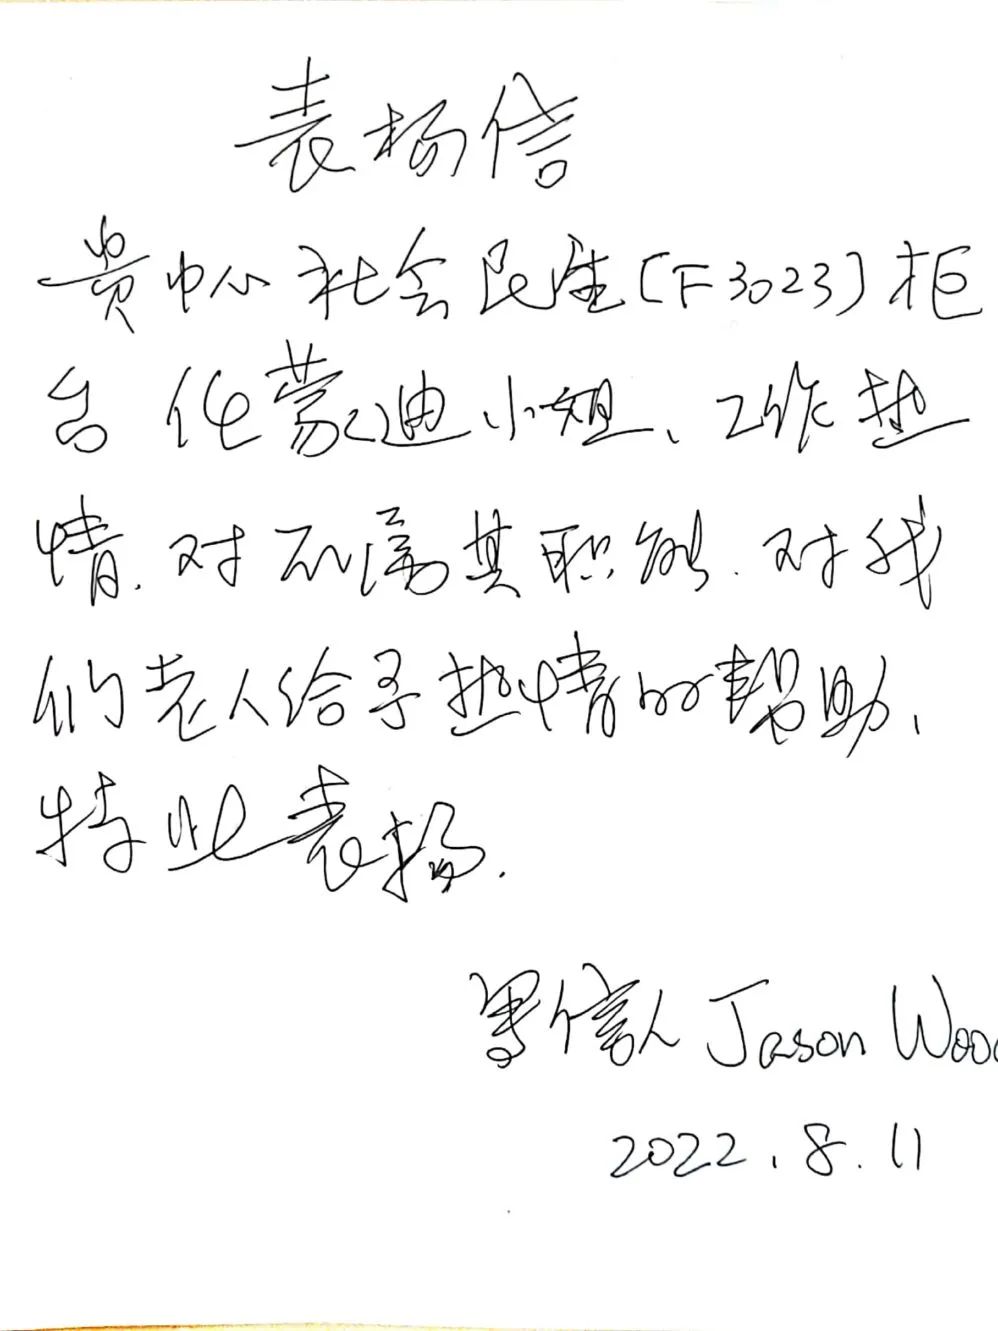 表扬信
贵中心社会民生(F3023)柜
台任蒙迪小姐、工作热
情.对不属其职能.对我
们老人给予热情的帮助,
特此表扬.
写信人 Jason Wood
2022.8.11